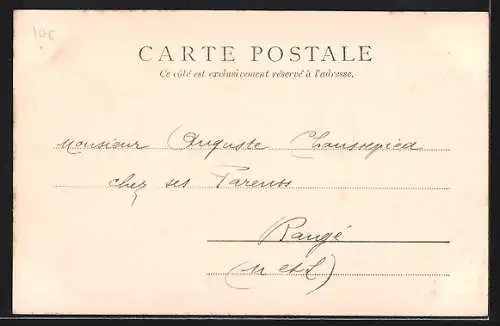 10c
CARTE POSTALE
Ce côté est exclusivement réservé à l'adresse.
Monsieur Auguste Chaussepied
chez ses Parents
Rangé
(M et L)